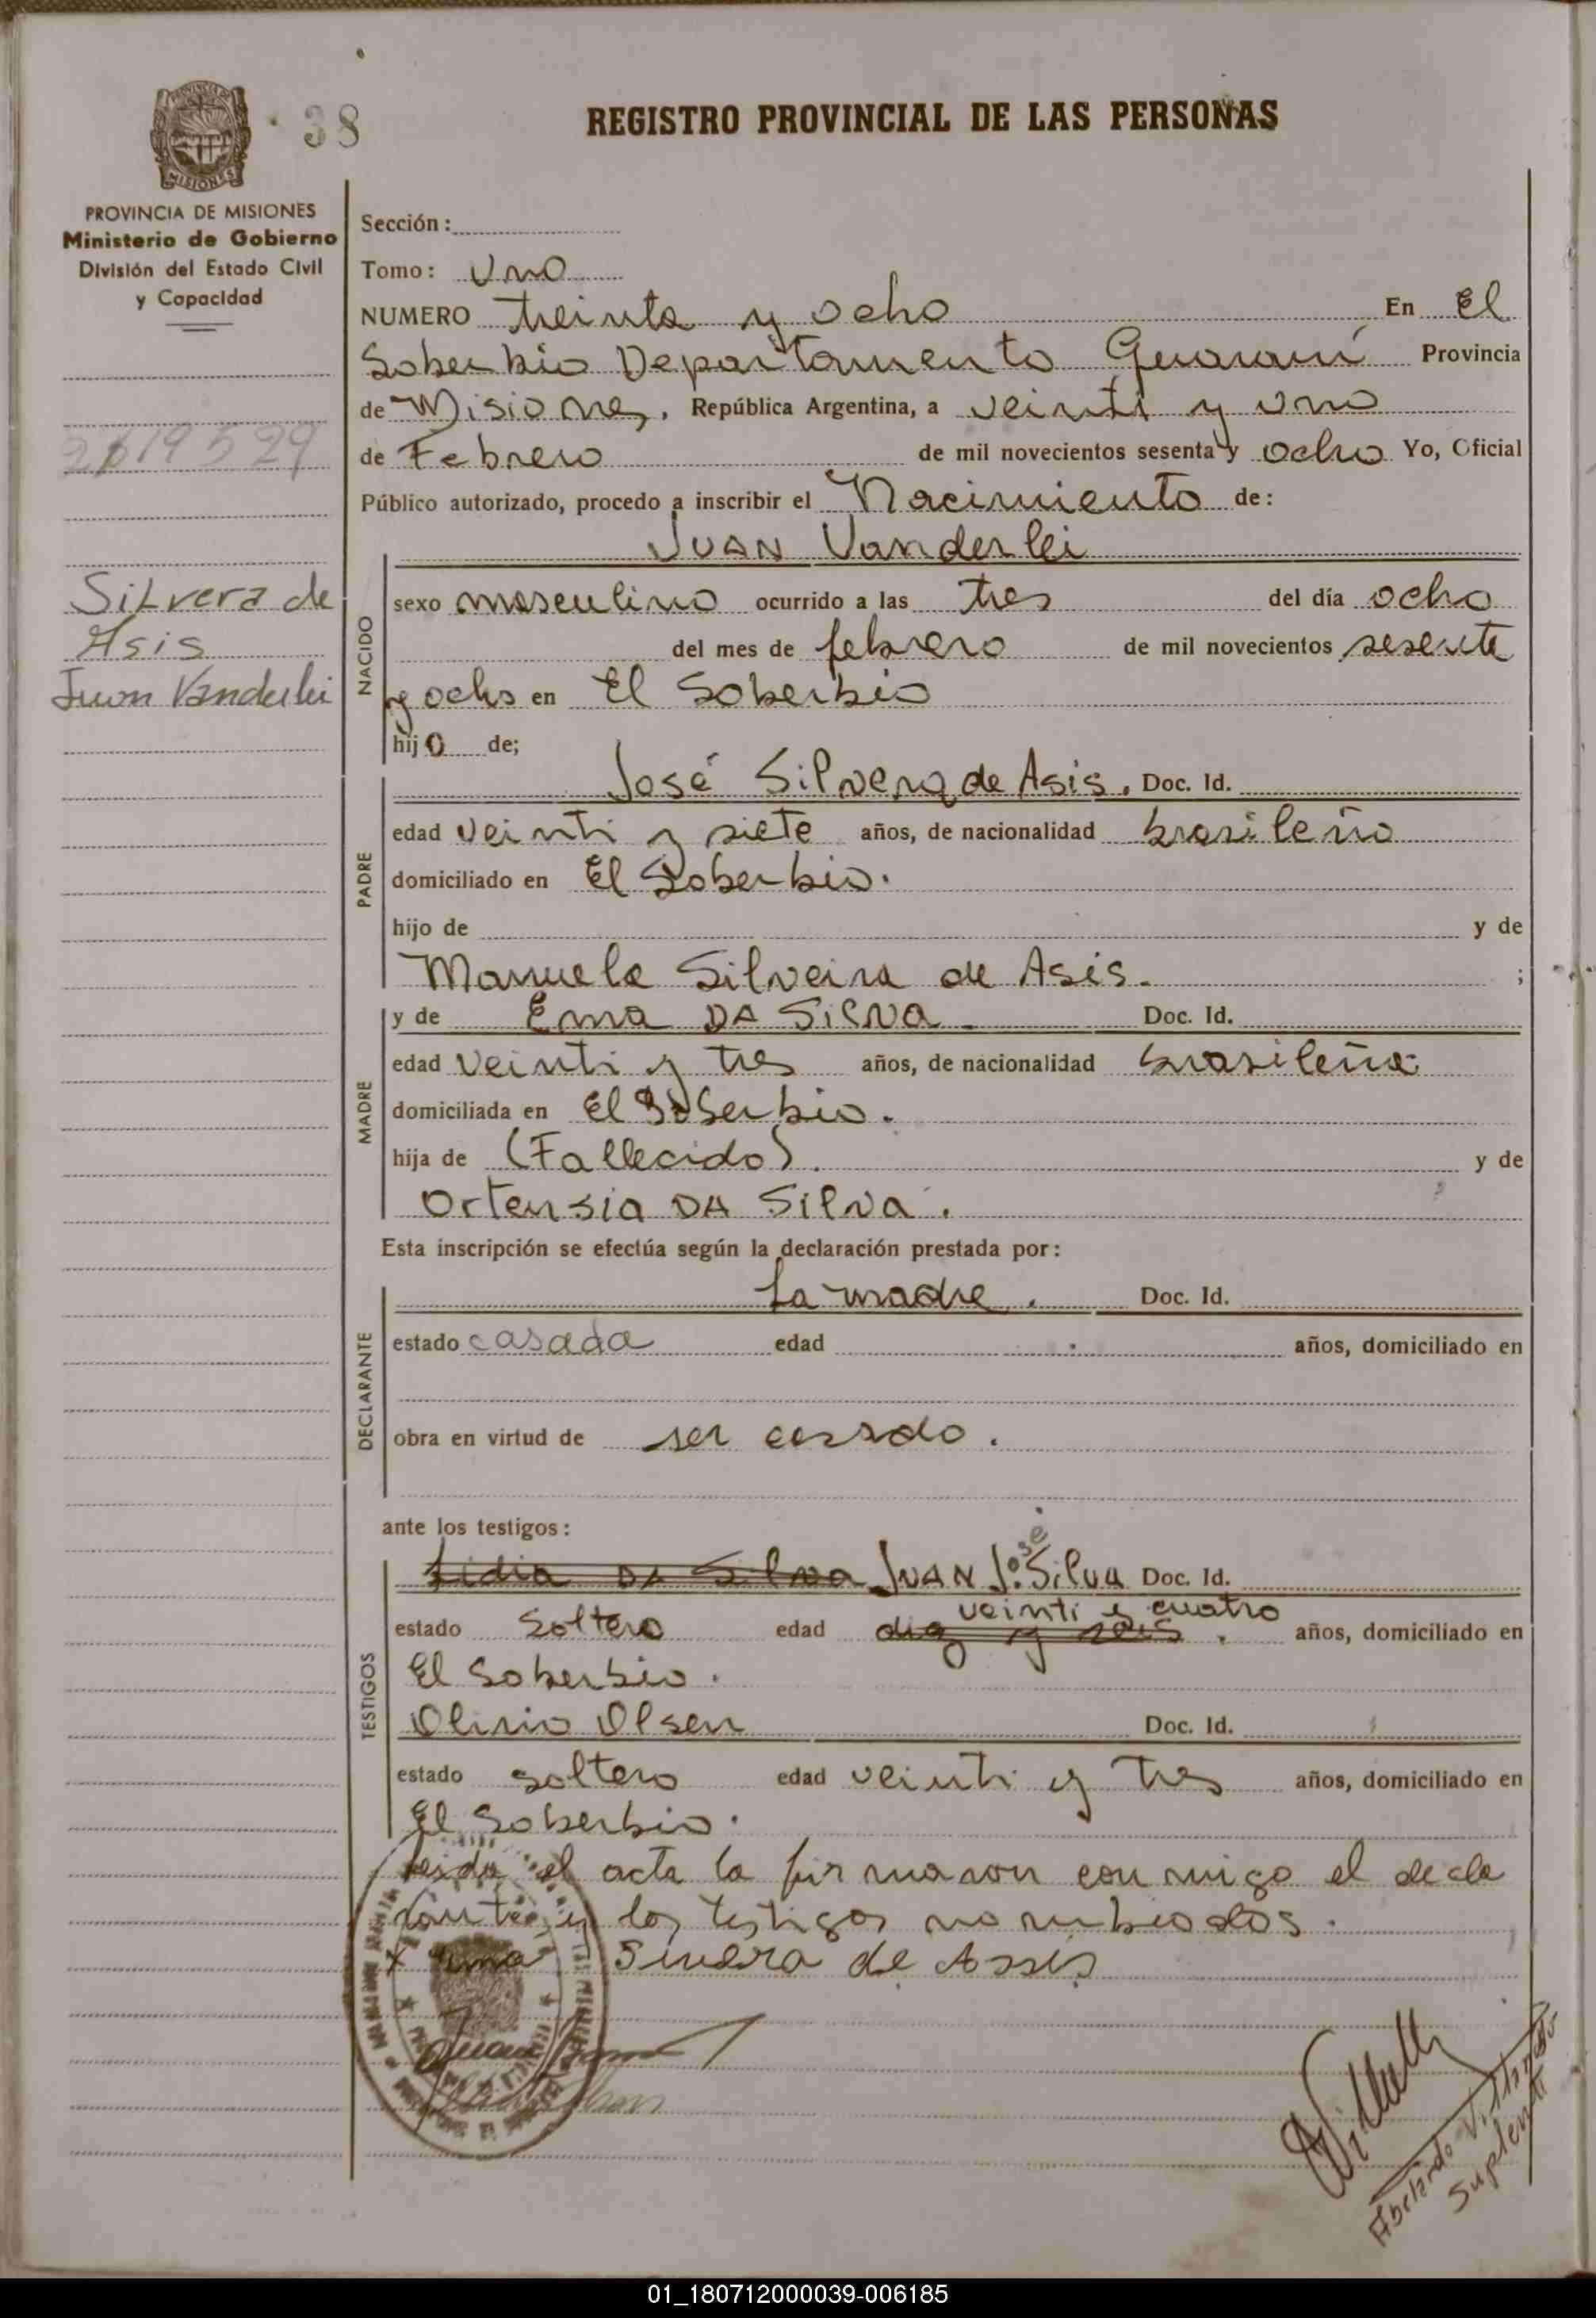 38
REGISTRO PROVINCIAL DE LAS PERSONAS
MISIONES
PROVINCIA DE MISIONES
Ministerio de Gobierno
División del Estado Civil
y Capacidad
2619529
Silvera de
Asis
Juan Vanderlei
Sección:
Tomo: Uno
NUMERO treinta y ocho En El
Soberbio Departamento Guaraní Provincia
de Misiones, República Argentina, a veinti y uno
de Febrero de mil novecientos sesenta y ocho Yo, Oficial
Público autorizado, procedo a inscribir el Nacimiento de:
JUAN Vanderlei
NACIDO
sexo masculino ocurrido a las tres del día ocho
del mes de febrero de mil novecientos sesenta
y ocho en El Soberbio
hijo de;
PADRE
José Silvera de Asis. Doc. Id.
edad veinti y siete años, de nacionalidad brasileño
domiciliado en El Soberbio.
hijo de y de
Manuela Silveira de Asis. ;
MADRE
y de Ema DA Silva Doc. Id.
edad veinti y tres años, de nacionalidad brasileña
domiciliada en El Soberbio.
hija de (Fallecido). y de
Ortensia DA Silva.
Esta inscripción se efectúa según la declaración prestada por:
DECLARANTE
La madre. Doc. Id.
estado casada edad años, domiciliado en
obra en virtud de ser casado.
ante los testigos:
TESTIGOS
Lidia DA Silva JUAN José Silva Doc. Id.
veinti y cuatro
estado Soltero edad diez y seis. años, domiciliado en
El Soberbio.
Olirio Olsen Doc. Id.
estado soltero edad veinti y tres años, domiciliado en
El Soberbio.
leida el acta la firmaron conmigo el decla
rante y los testigos nombrados.
x Ema Silvera de Assis
Juan
Abelardo Villa
Suplente
01_180712000039-006185